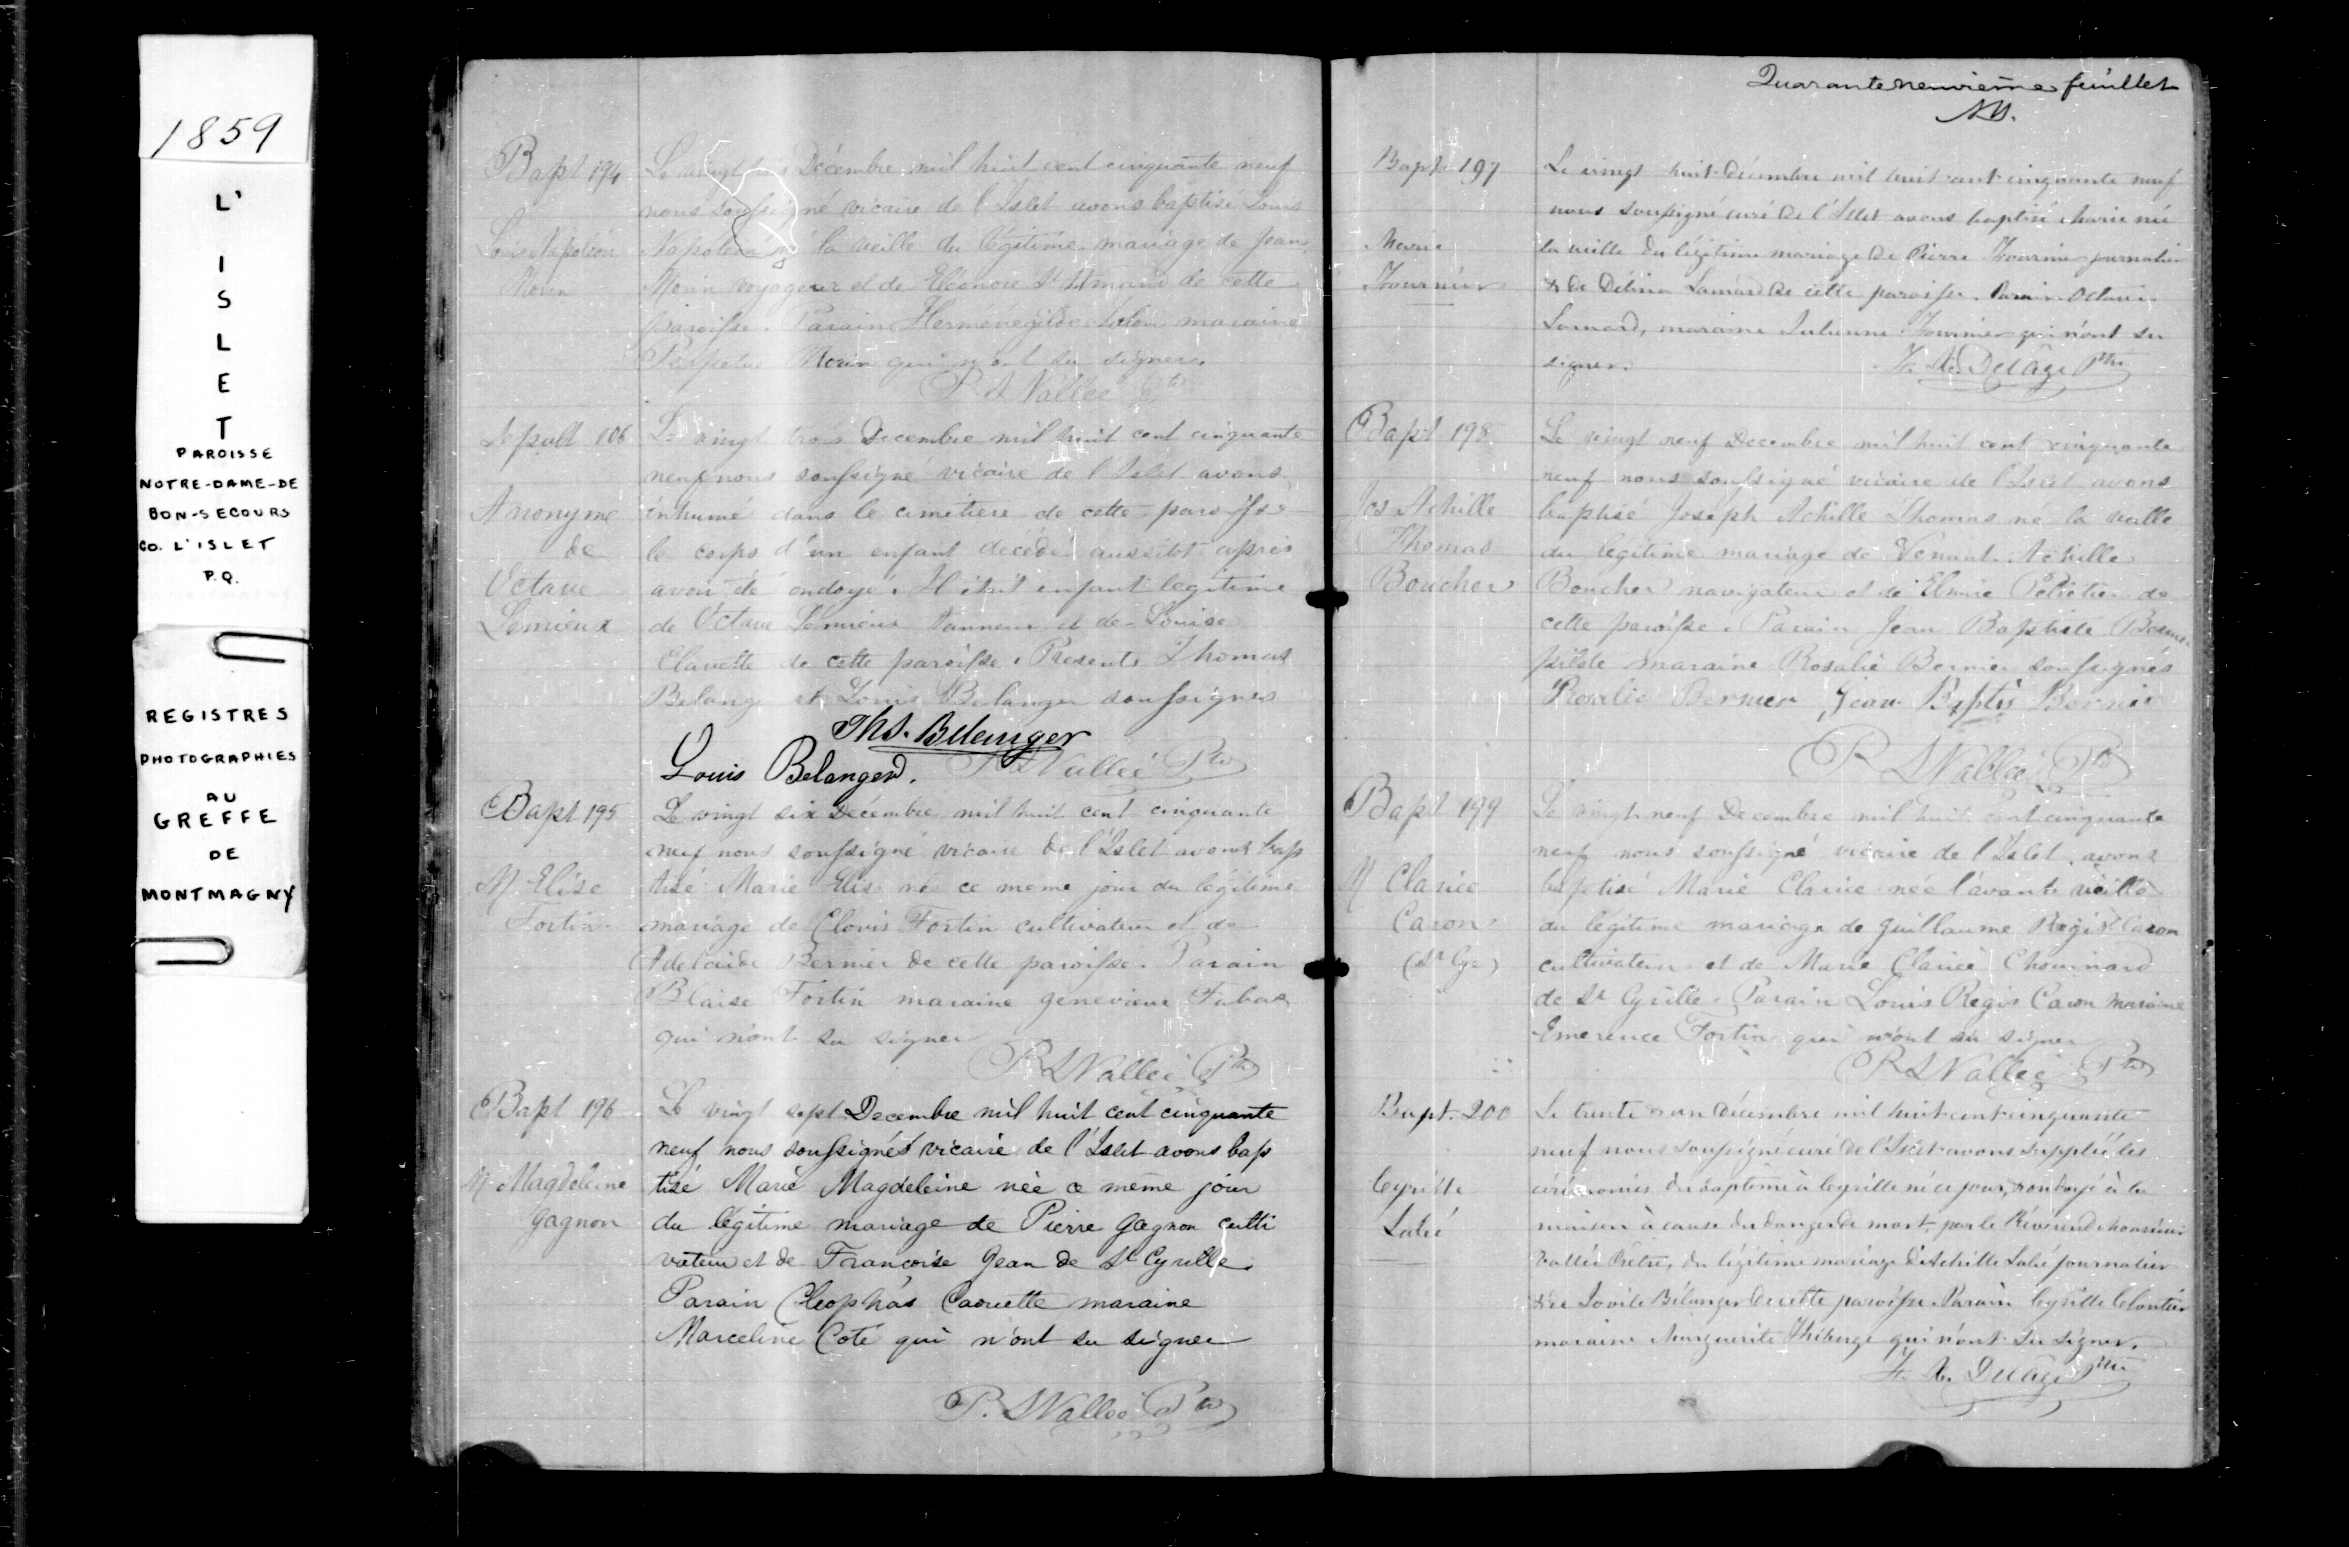 1859
L'
I
S
L
E
T
PAROISSE
NOTRE-DAME-DE
BON-SECOURS
CO. L'ISLET
P.Q.
REGISTRES
PHOTOGRAPHIES
AU
GREFFE
DE
MONTMAGNY
Bapt 194
Louis Napoléon
Morin
Le vingt Décembre mil huit cent cinquante neuf
nous soussigné vicaire de l'Islet avons baptisé Louis
Napoléon né la veille du légitime mariage de Jean
Morin voyageur et de Eléonore St Amand de cette
paroisse. Parain Herménégilde maraine
Morin qui n'ont su signer.
P S Vallée Ptre
Sepult 106
Anonyme
de
Octave
Lemieux
Le vingt trois Decembre mil huit cent cinquante
neuf nous soussigné vicaire de l'Islet avons
inhumé dans le cimetiere de cette paroisse
le corps d'un enfant décédé aussitôt apres
avoir été ondoyé. Il était enfant legitime
de Octave Lemieux Tanneur et de Louise
Clavette de cette paroisse. Presents Thomas
Belanger et Louis Belanger soussignés
Ths. Belanger
Louis Belanger. P S Vallée Ptre
Bapt 195
M. Elise
Fortin
Le vingt six Décembre mil huit cent cinquante
neuf nous soussigné vicaire de l'Islet avons bap
tisé Marie Elise né ce meme jour du légitime
mariage de Clovis Fortin cultivateur et de
Adelaide Bernier de cette paroisse. Parain
Blaise Fortin maraine genevieve
qui n'ont su signer
P S Vallée Ptre
Bapt 196
M. Magdeleine
Gagnon
Le vingt sept Decembre mil huit cent cinquante
neuf nous soussignés vicaire de l'Islet avons bap
tisé Marie Magdeleine née ce même jour
du légitime mariage de Pierre Gagnon culti
vateur et de Francoise Jean de St Cyrille.
Parain Cleophas Caouette maraine
Marceline Coté qui n'ont su signer
P. S Vallée Ptre
Quarante neuvième feuillet
Bapt. 197
Marie
Fournier
Le vingt huit Décembre mil huit cent cinquante neuf
nous soussigné curé de l'Islet avons baptisé Marie née
la veille du légitime mariage de Pierre Fournier journalier
& de Délina Lamard de cette paroisse. Parain Octave
Lamard, maraine Julienne Fournier qui n'ont su
signer. F. X. Delâge Ptre
Bapt 198
Jos Achille
Thomas
Boucher
Le vingt neuf Decembre mil huit cent cinquante
neuf nous soussigné vicaire de l'Islet avons
baptisé Joseph Achille Thomas né la veille
du legitime mariage de Venant Achille
Boucher navigateur et de Elmire Peletier de
cette paroisse. Parain Jean Baptiste Bernier
pilote maraine Rosalie Bernier soussignés
Rosalie Bernier Jean Bapts Bernier
P S Vallée Ptre
Bapt 199
M Clarice
Caron
(St Cyr)
Le vingt neuf Decembre mil huit cent cinquante
neuf nous soussigné vicaire de l'Islet avons
baptisé Marie Clarice née l'avant veille
du légitime mariage de Guillaume Régis Caron
cultivateur et de Marie Clarice Chouinard
de St Cyrille. Parain Louis Regis Caron Maraine
Emerence Fortin qui n'ont su signer
P S Vallée Ptre
Bapt. 200
Cyrille
Labé
Le trente & un Décembre mil huit cent cinquante
neuf nous soussigné curé de l'Islet avons suppléé les
cérémonies du baptême à Cyrille né ce jour, & ondoyé à la
maison à cause du danger de mort, par le Révérend Monsieur
Vallée Prêtre, du légitime mariage d'Achille Labé journalier
& de Jovite Bélanger de cette paroisse. Parain Cyrille Cloutier
maraine Marguerite Théberge qui n'ont su signer.
F. X. Delâge Ptre